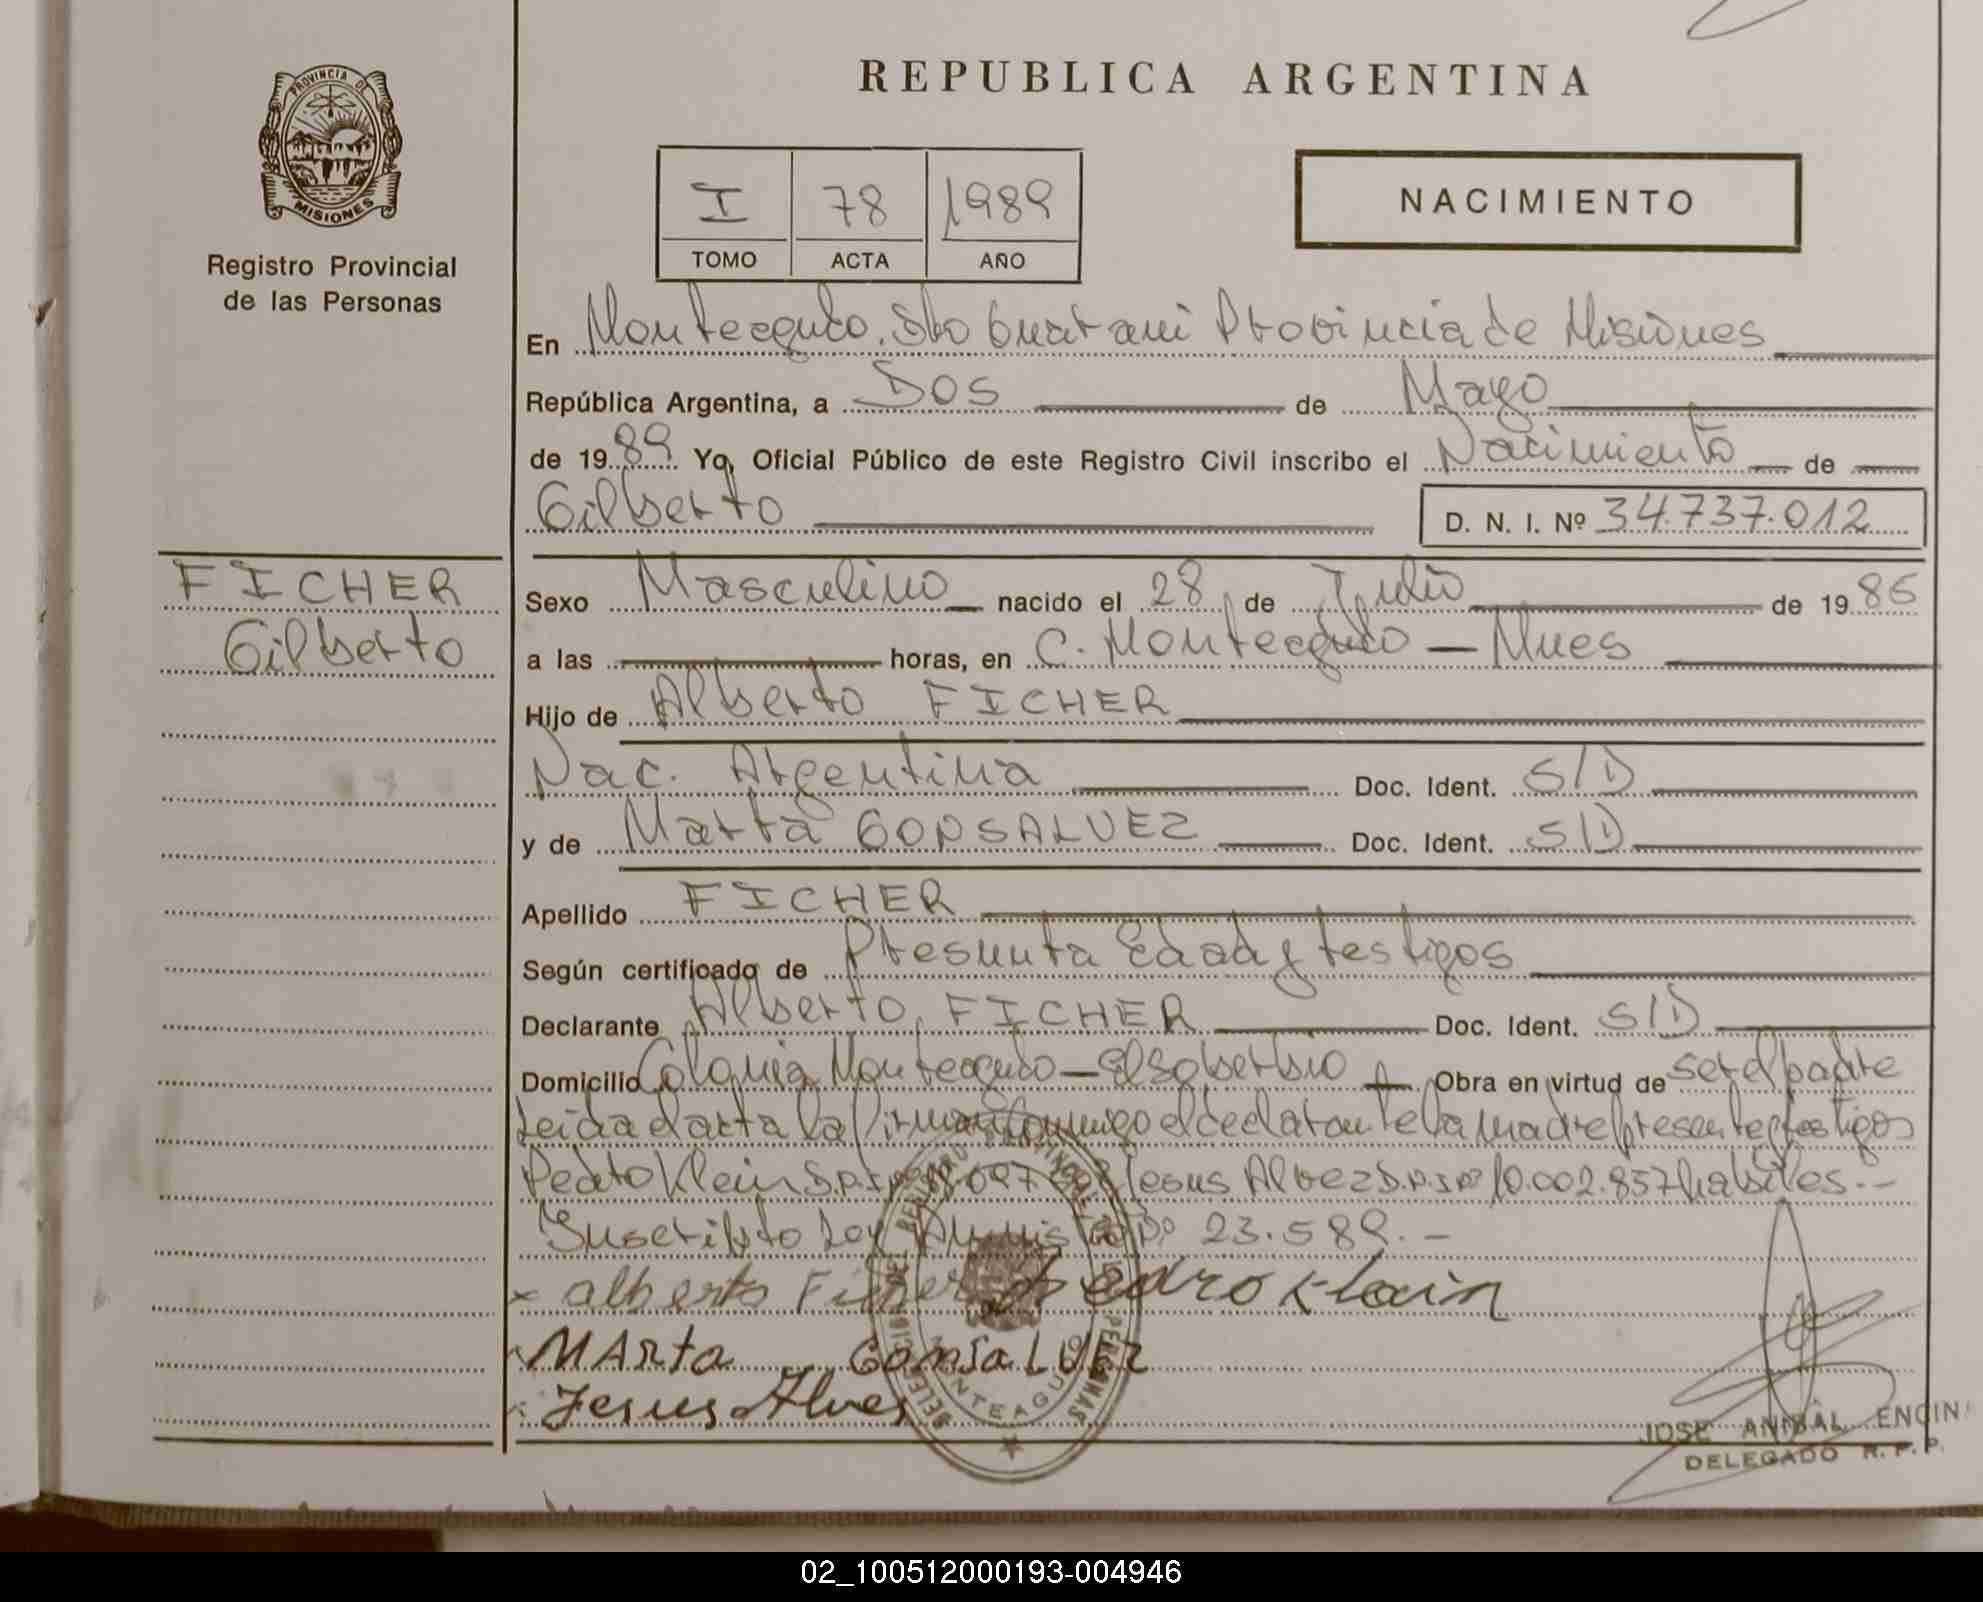 PROVINCIA DE
MISIONES
Registro Provincial
de las Personas
REPUBLICA ARGENTINA
I 78 1989
TOMO ACTA AÑO
NACIMIENTO
En Monteagudo. Dto Guarani Provincia de Misiones
República Argentina, a Dos de Mayo
de 1989 Yo, Oficial Público de este Registro Civil inscribo el Nacimiento de
Gilberto D. N. I. Nº 34.737.012
FICHER
Gilberto
Sexo Masculino nacido el 28 de Julio de 1986
a las horas, en C. Monteagudo — Mnes
Hijo de Alberto FICHER
Nac. Argentina Doc. Ident. S/D
y de Marta GONSALVEZ Doc. Ident. S/D
Apellido FICHER
Según certificado de Presunta Edad y testigos
Declarante Alberto FICHER Doc. Ident. S/D
Domicilio Colonia Monteagudo — El Soberbio Obra en virtud de ser el padre
Leida el acta la firman conmigo el declarante la madre presente y testigos
Pedro Klein D.N.I. Nº Jesus Alvez D.N.I. Nº 10.002.857 habiles.-
Inscripto Ley Amnistia Nº 23.589.-
x alberto Ficher Pedro Klain
MARta GonsaLVEz
Jesus Alves
MONTEAGUDO
JOSE ANIBAL ENCIN
DELEGADO R. P. P.
02_100512000193-004946